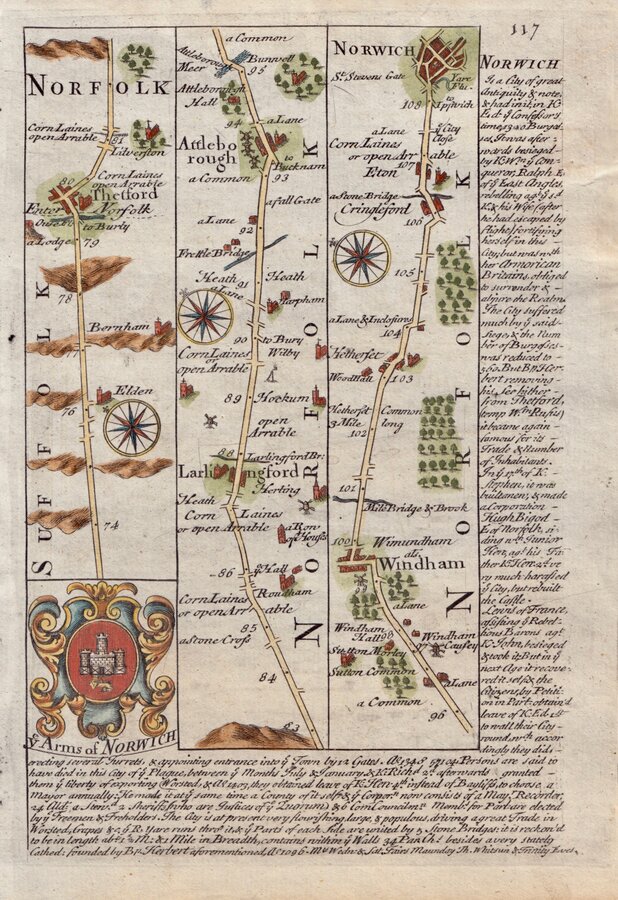 117
NORFOLK
Corn Laines
open Arrable
81
Lilverston
Corn Laines
open Arrable
80
Thetford
Enter
Norfolk
to Burly
a Lodge
79
78
Bernham
Elden
76
74
SUFFOLK
y Arms of NORWICH
a Common
Attleborough
Meer
Bunwell
95
Attleborough
Hall
94
a Lane
Attlebo
rough
to
Bucknam
a Common
93
a fall Gate
a Lane
92
Frettle Bridge
Heath
91
Heath
a Lane
Harpham
90
to Bury
Corn Laines
or open Arrable
Wilby
89
Hockum
open
Arrable
88
Larlingford Br:
Larlingford
Herting
Heath
Corn Laines
or open Arrable
a Row
of Houses
y Hall
86
Roudham
Corn Laines
or open Arrable
85
a Stone Cross
84
83
NORFOLK
NORWICH
St. Stevens Gate
Yare
Flu:
108
to
Ipswich
a Lane
y City
Close
Corn Laines
or open Arrable
107
Eton
a Stone Bridge
Cringleford
106
105
a Lane & Inclosures
104
Hetherset
Woodhall
103
Hetherset Common
3 Mile long
102
101
Mile Bridge & Brook
100
Wimundham
als
Windham
99
a Lane
Windham
Hall
98
Windham
Causey
97
Sutton Morley
Sutton Common
a Lane
a Common
96
NORFOLK
NORWICH
Is a City of great
Antiquity & note,
& had in it, in K.
Ed: y Confessors
time, 1320 Burges-
ses. It was after-
wards besieged
by K. Wm y Con-
queror, Ralph E.
of y East Angles
rebelling agt y sd
K. & his Wife (after
he had escaped by
flight) fortifying
herself in this
City, but was wth
her Armorican
Britains, obliged
to surrender &
abjure the Realm
The City suffered
much by y said
Siege, & the Num
ber of Burgesses
was reduced to
560. But Bp Her-
bert removing
his See hither
from Thetford,
(temp Wm Rufus)
it became again
famous for its
Trade & Number
of Inhabitants.
In y 17th of K.
Stephen, it was
built anew, & made
a Corporation
Hugh Bigod
E. of Norfolk, si-
ding wth Junior
Hen: agt his Fa-
ther K. Hen: 2d ve
ry much harassed
y City, but rebuilt
the Castle.
Lewis of France,
assisting y Rebel-
lious Barons agt
K. John, besieged
& took it: But in y
next Age it recove-
red it self, & the
Citizens by Petiti-
on in Parlt obtain'd
leave of K. Ed. 1st
to wall their City
round, wch accor
dingly they did,
erecting several Turrets, & appointing entrance into y Town by 12 Gates. Ao 1348 57104 Persons are said to
have died in this City of y Plague, between y Months July & January, & K. Richd 2d afterwards granted
them y liberty of exporting Worsted, & Ao 1403, they obtained leave of K. Hen 4th instead of Bayliffs, to choose a
Mayor annually; He made it at y same time a County in it self, & y Corporn now consists of a Mayr, Recorder,
24 Aldn a Stewd 2 Sheriffs, (who are Justices of y Quorum) & 60 Com Councilmen. Membrs for Parlt are elected
by y Freemen & Freeholders. The City is at present very flourishing, large, & populous, driving a great Trade in
Worsted, Crapes &c. y R. Yare runs thro' it & y Parts of each Side are united by 5 Stone Bridges: it is reckon'd
to be in length abt 1½ M: & 1 Mile in Breadth, contains within y Walls 34 Par: Chs. besides a very stately
Cathed: founded by Bp Herbert aforementioned, Ao 1096. Mts Wedn: & Sat: Fairs Maunday Th. Whitsun & Trinity Eves.